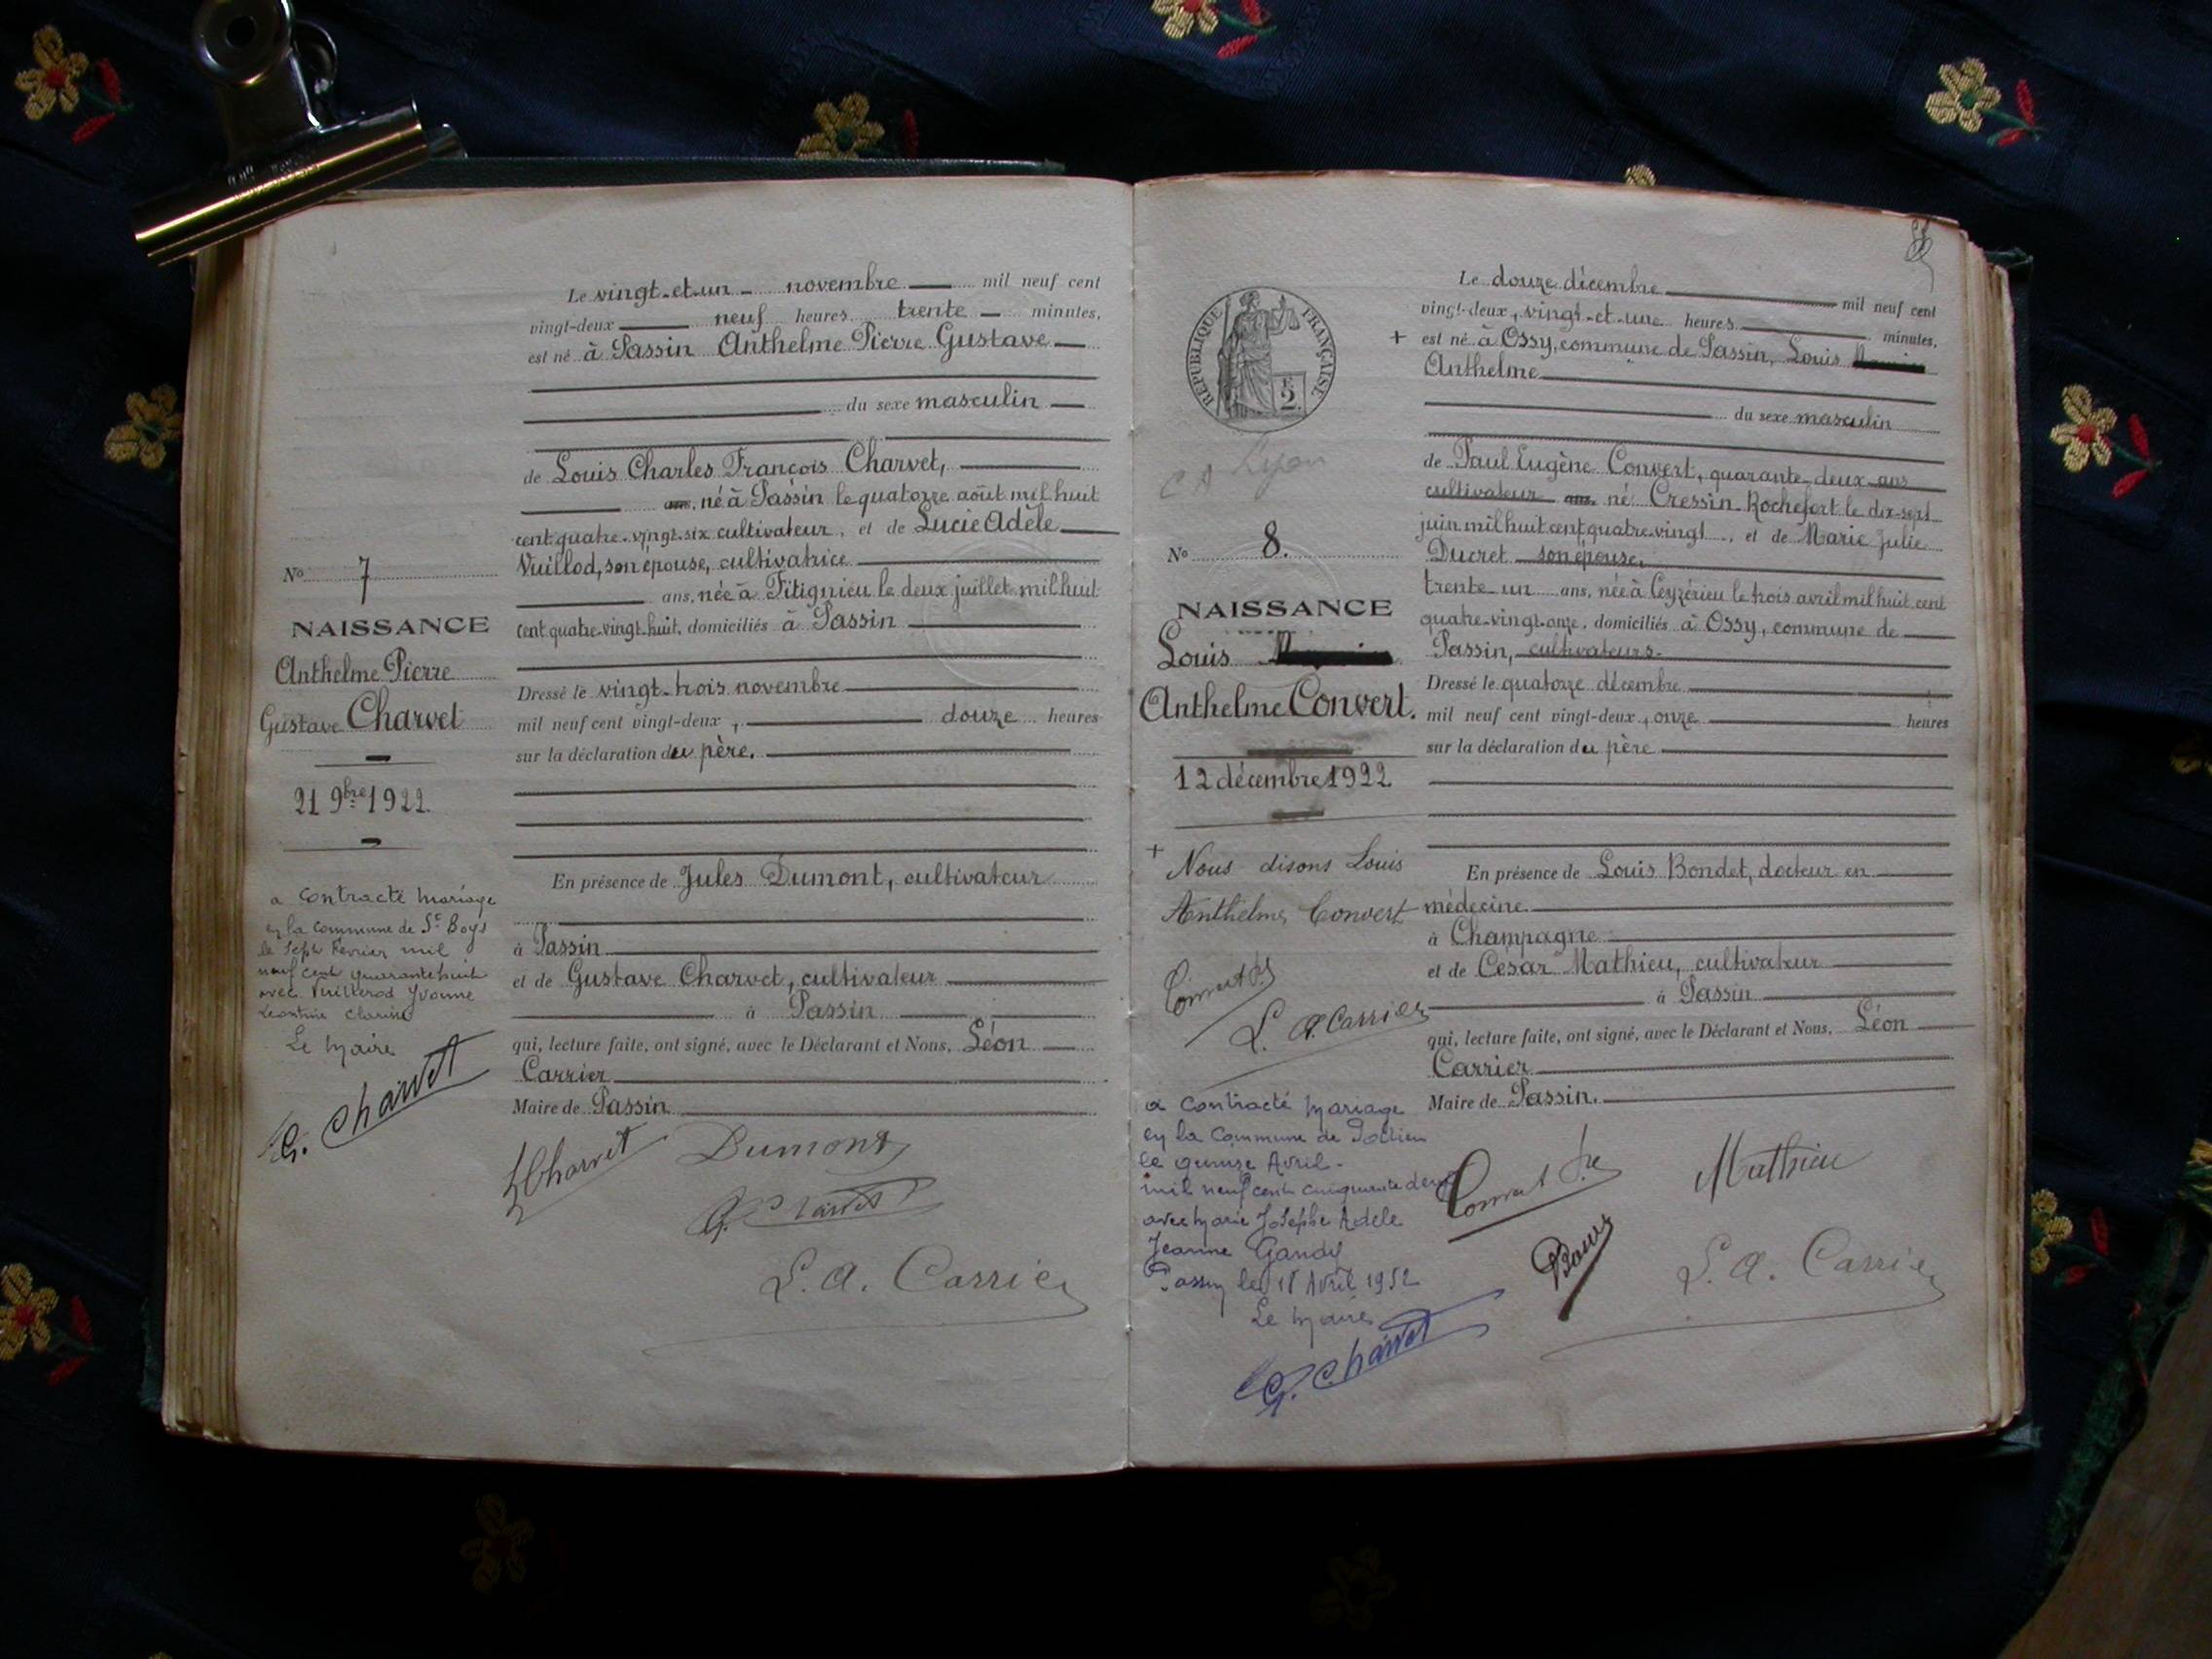 Le vingt-et-un novembre mil neuf cent
vingt-deux neuf heures trente minutes,
est né à Passin Anthelme Pierre Gustave
du sexe masculin
de Louis Charles François Charvet,
ans, né à Passin le quatorze août mil huit
cent quatre-vingt-six cultivateur, et de Lucie Adèle
Vuillod, son épouse, cultivatrice
ans, née à Fitignieu le deux juillet mil huit
cent quatre-vingt-huit, domiciliés à Passin
Dressé le vingt-trois novembre
mil neuf cent vingt-deux, douze heures
sur la déclaration du père.
En présence de Jules Dumont, cultivateur
à Passin
et de Gustave Charvet, cultivateur
à Passin
qui, lecture faite, ont signé, avec le Déclarant et Nous, Léon
Carrier
Maire de Passin
LCharvet Dumont
G. Charvet
L. A. Carrier
No 7
NAISSANCE
Anthelme Pierre
Gustave Charvet
21 9bre 1922
a contracté mariage
en la commune de St Boys
le sept Février mil
neuf cent quarante huit
avec Yvonne
Léontine
Le Maire
G. Charvet
RÉPUBLIQUE FRANÇAISE
5
CA Lyon
No 8.
NAISSANCE
Louis
Anthelme Convert.
12 décembre 1922
+ Nous disons Louis
Anthelme Convert
Convert
L. A. Carrier
a contracté mariage
en la Commune de
le quinze Avril
mil neuf cent cinquante deux
avec Marie Josèphe Adèle
Jeanne Gandy
Passin le 18 Avril 1952
Le Maire
G. Charvet
Le douze décembre mil neuf cent
vingt-deux, vingt-et-une heures minutes,
+ est né à Ossy, commune de Passin, Louis
Anthelme
du sexe masculin
de Paul Eugène Convert, quarante-deux ans
cultivateur ans, né Cressin-Rochefort le dix-sept
juin mil huit cent quatre-vingt, et de Marie Julie
Ducret son épouse,
trente-un ans, née à Ceyzérieu le trois avril mil huit cent
quatre-vingt-onze, domiciliés à Ossy, commune de
Passin, cultivateurs.
Dressé le quatorze décembre
mil neuf cent vingt-deux, onze heures
sur la déclaration du père
En présence de Louis Bondet, docteur en
médecine
à Champagne
et de César Mathieu, cultivateur
à Passin
qui, lecture faite, ont signé, avec le Déclarant et Nous, Léon
Carrier
Maire de Passin.
Convert Mathieu
L. A. Carrier